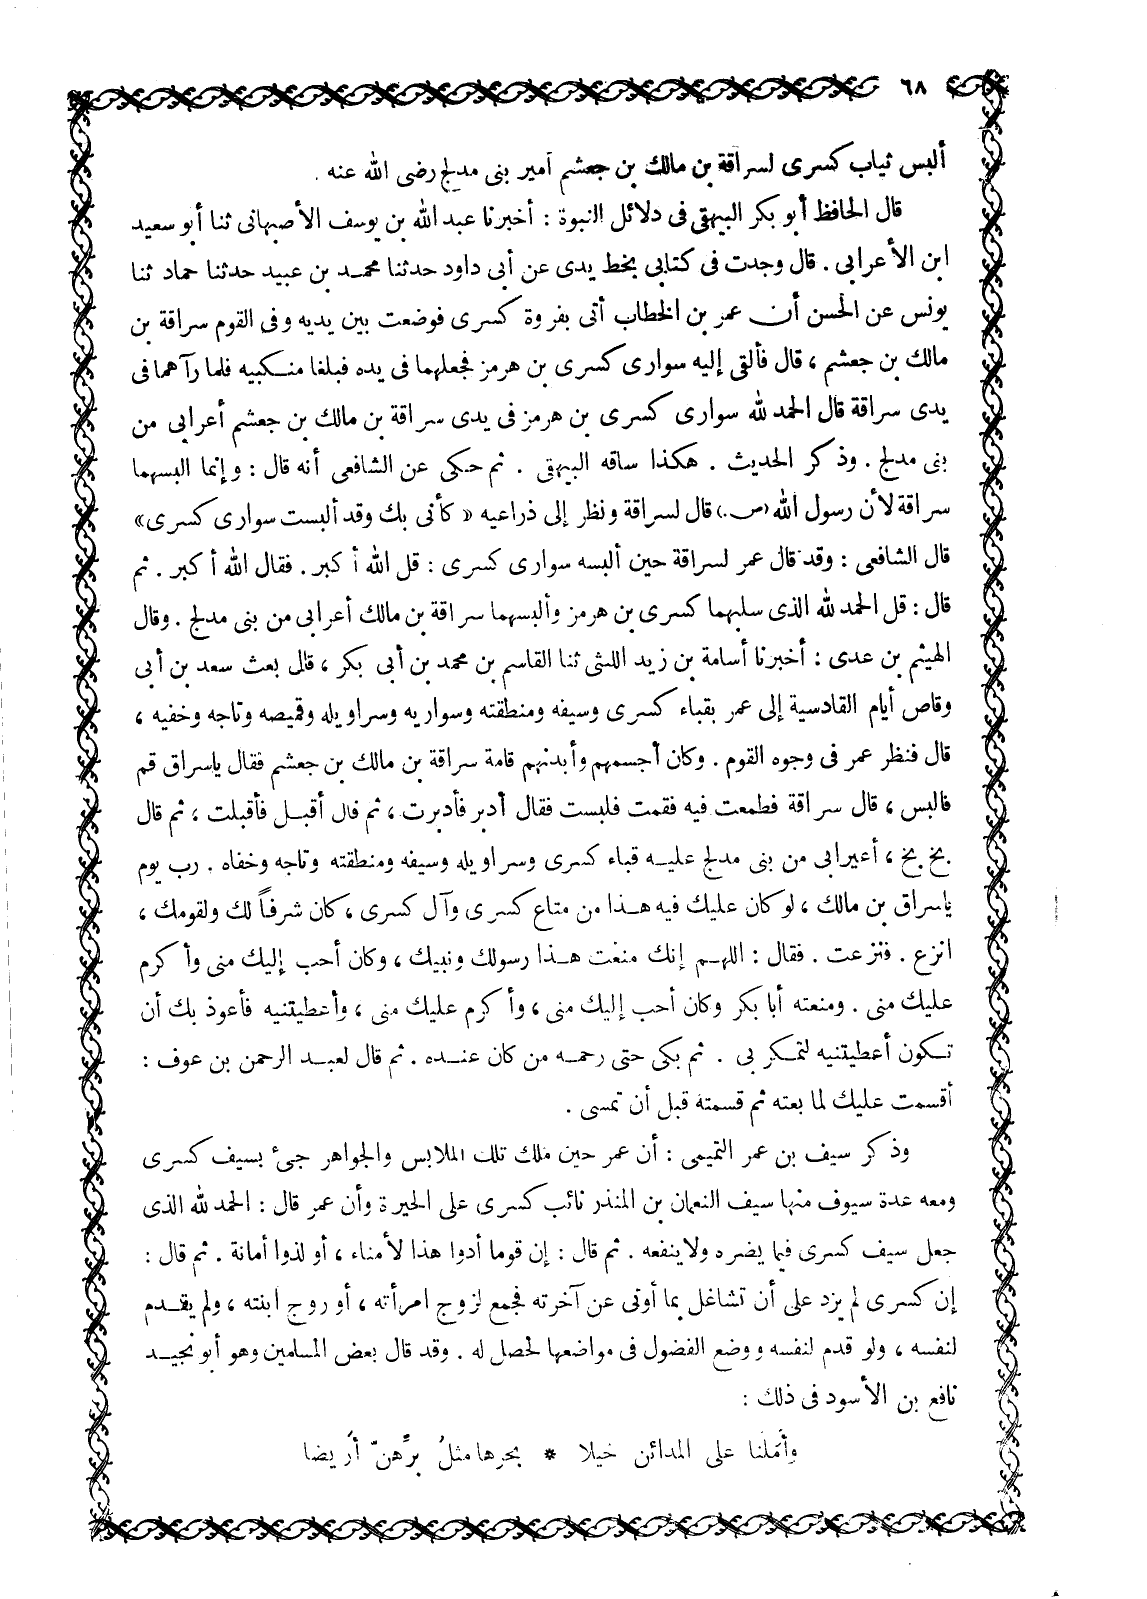 ٦٨
ألبس ثياب كسرى لسراقة بن مالك بن جعشم أمير بنى مدلج رضى الله عنه .
قال الحافظ أبو بكر البيهقى فى دلائل النبوة : أخبرنا عبد الله بن يوسف الأصبهانى ثنا أبو سعيد
ابن الأعرابى . قال وجدت فى كتابى بخط يدى عن أبى داود حدثنا محمد بن عبيد حدثنا حماد ثنا
يونس عن الحسن أن عمر بن الخطاب أتى بفروة كسرى فوضعت بين يديه وفى القوم سراقة بن
مالك بن جعشم ، قال فألقى إليه سوارى كسرى بن هرمز فجعلهما فى يده فبلغا منكبيه فلما رآهما فى
يدى سراقة قال الحمد لله سوارى كسرى بن هرمز فى يدى سراقة بن مالك بن جعشم أعرابى من
بنى مدلج . وذكر الحديث . هكذا ساقه البيهقى . ثم حكى عن الشافعى أنه قال : وإنما ألبسهما
سراقة لأن رسول الله (ص.) قال لسراقة ونظر إلى ذراعيه « كأنى بك وقد ألبست سوارى كسرى»
قال الشافعى : وقد قال عمر لسراقة حين ألبسه سوارى كسرى : قل الله أكبر . فقال الله أكبر . ثم
قال : قل الحمد لله الذى سلبهما كسرى بن هرمز وألبسهما سراقة بن مالك أعرابى من بنى مدلج . وقال
الهيثم بن عدى : أخبرنا أسامة بن زيد الليثى ثنا القاسم بن محمد بن أبى بكر ، قال بعث سعد بن أبى
وقاص أيام القادسية إلى عمر بقباء كسرى وسيفه ومنطقته وسواريه وسراويله وقميصه وتاجه وخفيه ،
قال فنظر عمر فى وجوه القوم . وكان أجسمهم وأبدنهم قامة سراقة بن مالك بن جعشم فقال ياسراق قم
فالبس ، قال سراقة فطمعت فيه فقمت فلبست فقال أدبر فأدبرت ، ثم قال أقبل فأقبلت ، ثم قال
بخ بخ ، أعيرابى من بنى مدلج عليه قباء كسرى وسراويله وسيفه ومنطقته وتاجه وخفاه . رب يوم
ياسراق بن مالك ، لو كان عليك فيه هذا من متاع كسرى وآل كسرى ، كان شرفاً لك ولقومك ،
انزع . فنزعت . فقال : اللهم إنك منعت هذا رسولك ونبيك ، وكان أحب إليك منى وأكرم
عليك منى . ومنعته أبا بكر وكان أحب إليك منى ، وأكرم عليك منى ، وأعطيتنيه فأعوذ بك أن
تكون أعطيتنيه لتمكر بى . ثم بكى حتى رحمه من كان عنده . ثم قال لعبد الرحمن بن عوف :
أقسمت عليك لما بعته ثم قسمته قبل أن تمسى .
وذكر سيف بن عمر التميمى : أن عمر حين ملك تلك الملابس والجواهر جىء بسيف كسرى
ومعه عدة سيوف منها سيف النعمان بن المنذر نائب كسرى على الحيرة وأن عمر قال : الحمد لله الذى
جعل سيف كسرى فيما يضره ولاينفعه . ثم قال : إن قوما أدوا هذا لأمناء ، أو لذوا أمانة . ثم قال :
إن كسرى لم يزد على أن تشاغل بما أوتى عن آخرته فجمع لزوج امرأته ، أو زوج ابنته ، ولم يقدم
لنفسه ، ولو قدم لنفسه ووضع الفضول فى مواضعها لحصل له . وقد قال بعض المسلمين وهو أبو نجيد
نافع بن الأسود فى ذلك :
وأمَلنا على المدائن خيلا * بحرها مثلُ برِّهنّ أريضا